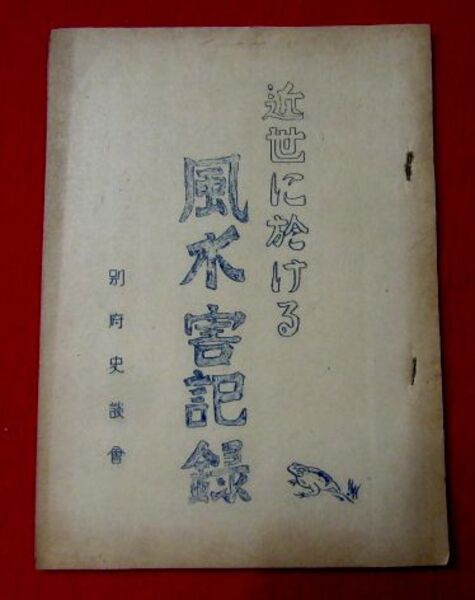 近世に於ける
風水害記録
別府史談會